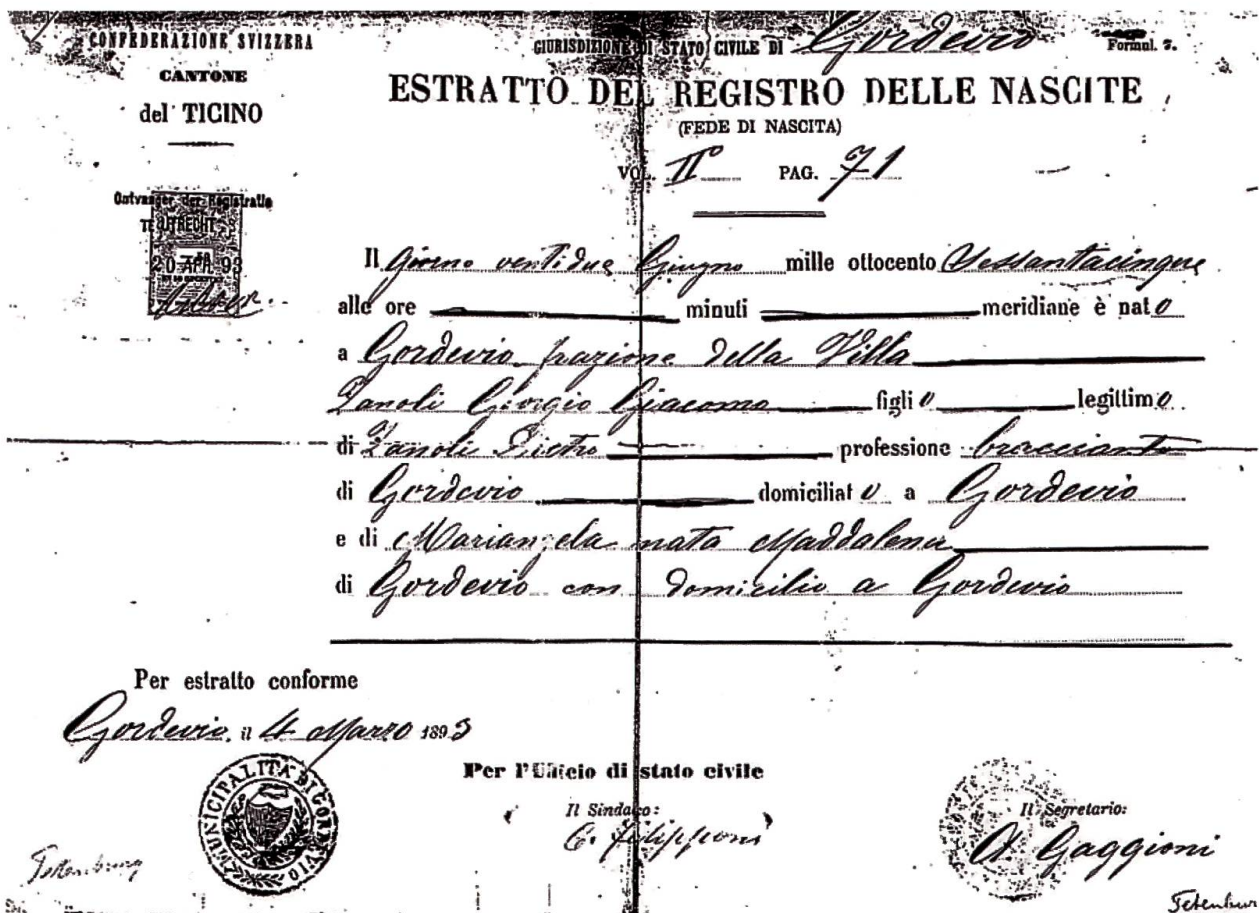 CONFEDERAZIONE SVIZZERA
CANTONE
del TICINO
GIURISDIZIONE DI STATO CIVILE DI Gordevio
Formul. 7.
ESTRATTO DEL REGISTRO DELLE NASCITE
(FEDE DI NASCITA)
VOL. II° PAG. 71
Ontvanger der Registratie
TE UTRECHT
20 APR. 93
Il Giorno ventidue Giugno mille ottocento Sessantacinque
alle ore minuti meridiane è nato
a Gordevio frazione della Villa
Zanoli Giorgio Giacomo figlio legittimo
di Zanoli Pietro professione bracciante
di Gordevio domiciliato a Gordevio
e di Mariangela nata Maddalena
di Gordevio con domicilio a Gordevio
Per estratto conforme
Gordevio, il 4 Marzo 1893
MUNICIPALITÀ DI GORDEVIO
Per l'Ufficio di stato civile
Il Sindaco:
C. Filipponi
Il Segretario:
A. Gaggioni